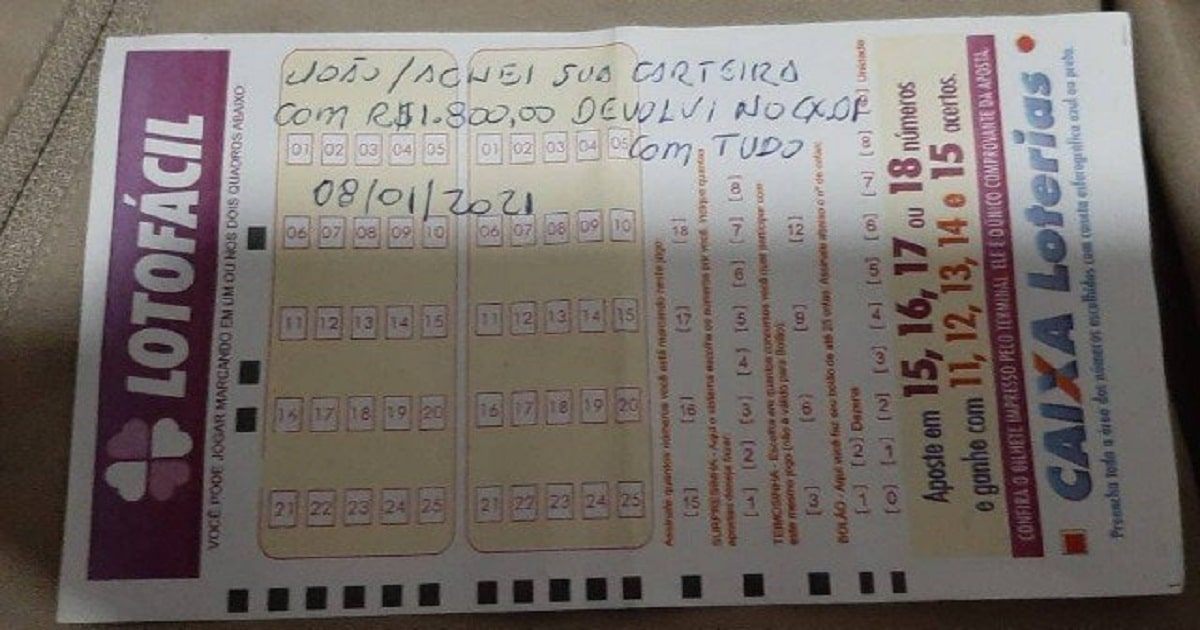 JOÃO/ACHEI SUA CARTEIRA
COM R$1.800,00 DEVOLVI NO
COM TUDO
08/01/2021
LOTOFÁCIL
VOCÊ PODE JOGAR MARCANDO EM UM OU NOS DOIS QUADROS ABAIXO
01 02 03 04 05
06 07 08 09 10
11 12 13 14 15
16 17 18 19 20
21 22 23 24 25
01 02 03 04 05
06 07 08 09 10
11 12 13 14 15
16 17 18 19 20
21 22 23 24 25
Assinale quantos números você está marcando neste jogo:
[15] [16] [17] [18]
SURPRESINHA - Aqui o sistema escolhe os números por você. Indique quantas
apostas deseja fazer:
[1] [2] [3] [4] [5] [6] [7] [8]
TEIMOSINHA - Escolha em quantos concursos você quer participar com
este mesmo jogo (não é válido para Bolão):
[3] [6] [9] [12]
BOLÃO - Aqui você faz seu bolão
[1] [2] Dezena
[0] [1] [2] [3] [4] [5] [6] [7] [8] [9] Unidade
Aposte em 15, 16, 17 ou 18 números
e ganhe com 11, 12, 13, 14 e 15 acertos.
CONFIRA O BILHETE IMPRESSO PELO TERMINAL. ELE É O ÚNICO COMPROVANTE DA APOSTA.
CAIXA Loterias
Preencha toda a área dos números escolhidos com caneta esferográfica azul ou preta.